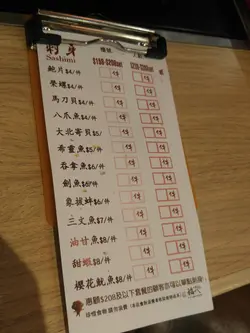 刺身
Sashimi
$198-$208set
鮑片$4/件 件 件
螢螺$4/件 件 件
馬刀貝$4/件 件 件
八爪魚$4/件 件 件
大北寄貝$5/件 件 件
希靈魚$5/件 件 件
吞拿魚$6/件 件 件
劍魚$6/件 件 件
象拔蚌$6/件 件 件
三文魚$7/件 件 件
油甘魚$8/件 件 件
甜蝦$8/件 件 件
櫻花魷魚$8/件 件 件
惠顧$208及以下套餐的顧客亦可以單點刺身
珍惜食物 請勿浪費